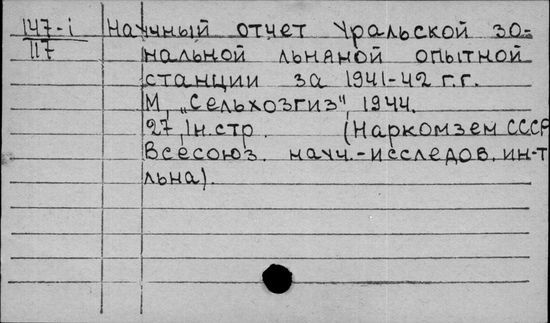 147-i Научный отчет Уральской зо-
117 нальной льняной опытной
станции за 1941-42 г.г.
М, „Сельхозгиз", 1944.
27, Iн.стр. (Наркомзем СССР
Всесоюз. науч.-исследов. ин-т
льна).